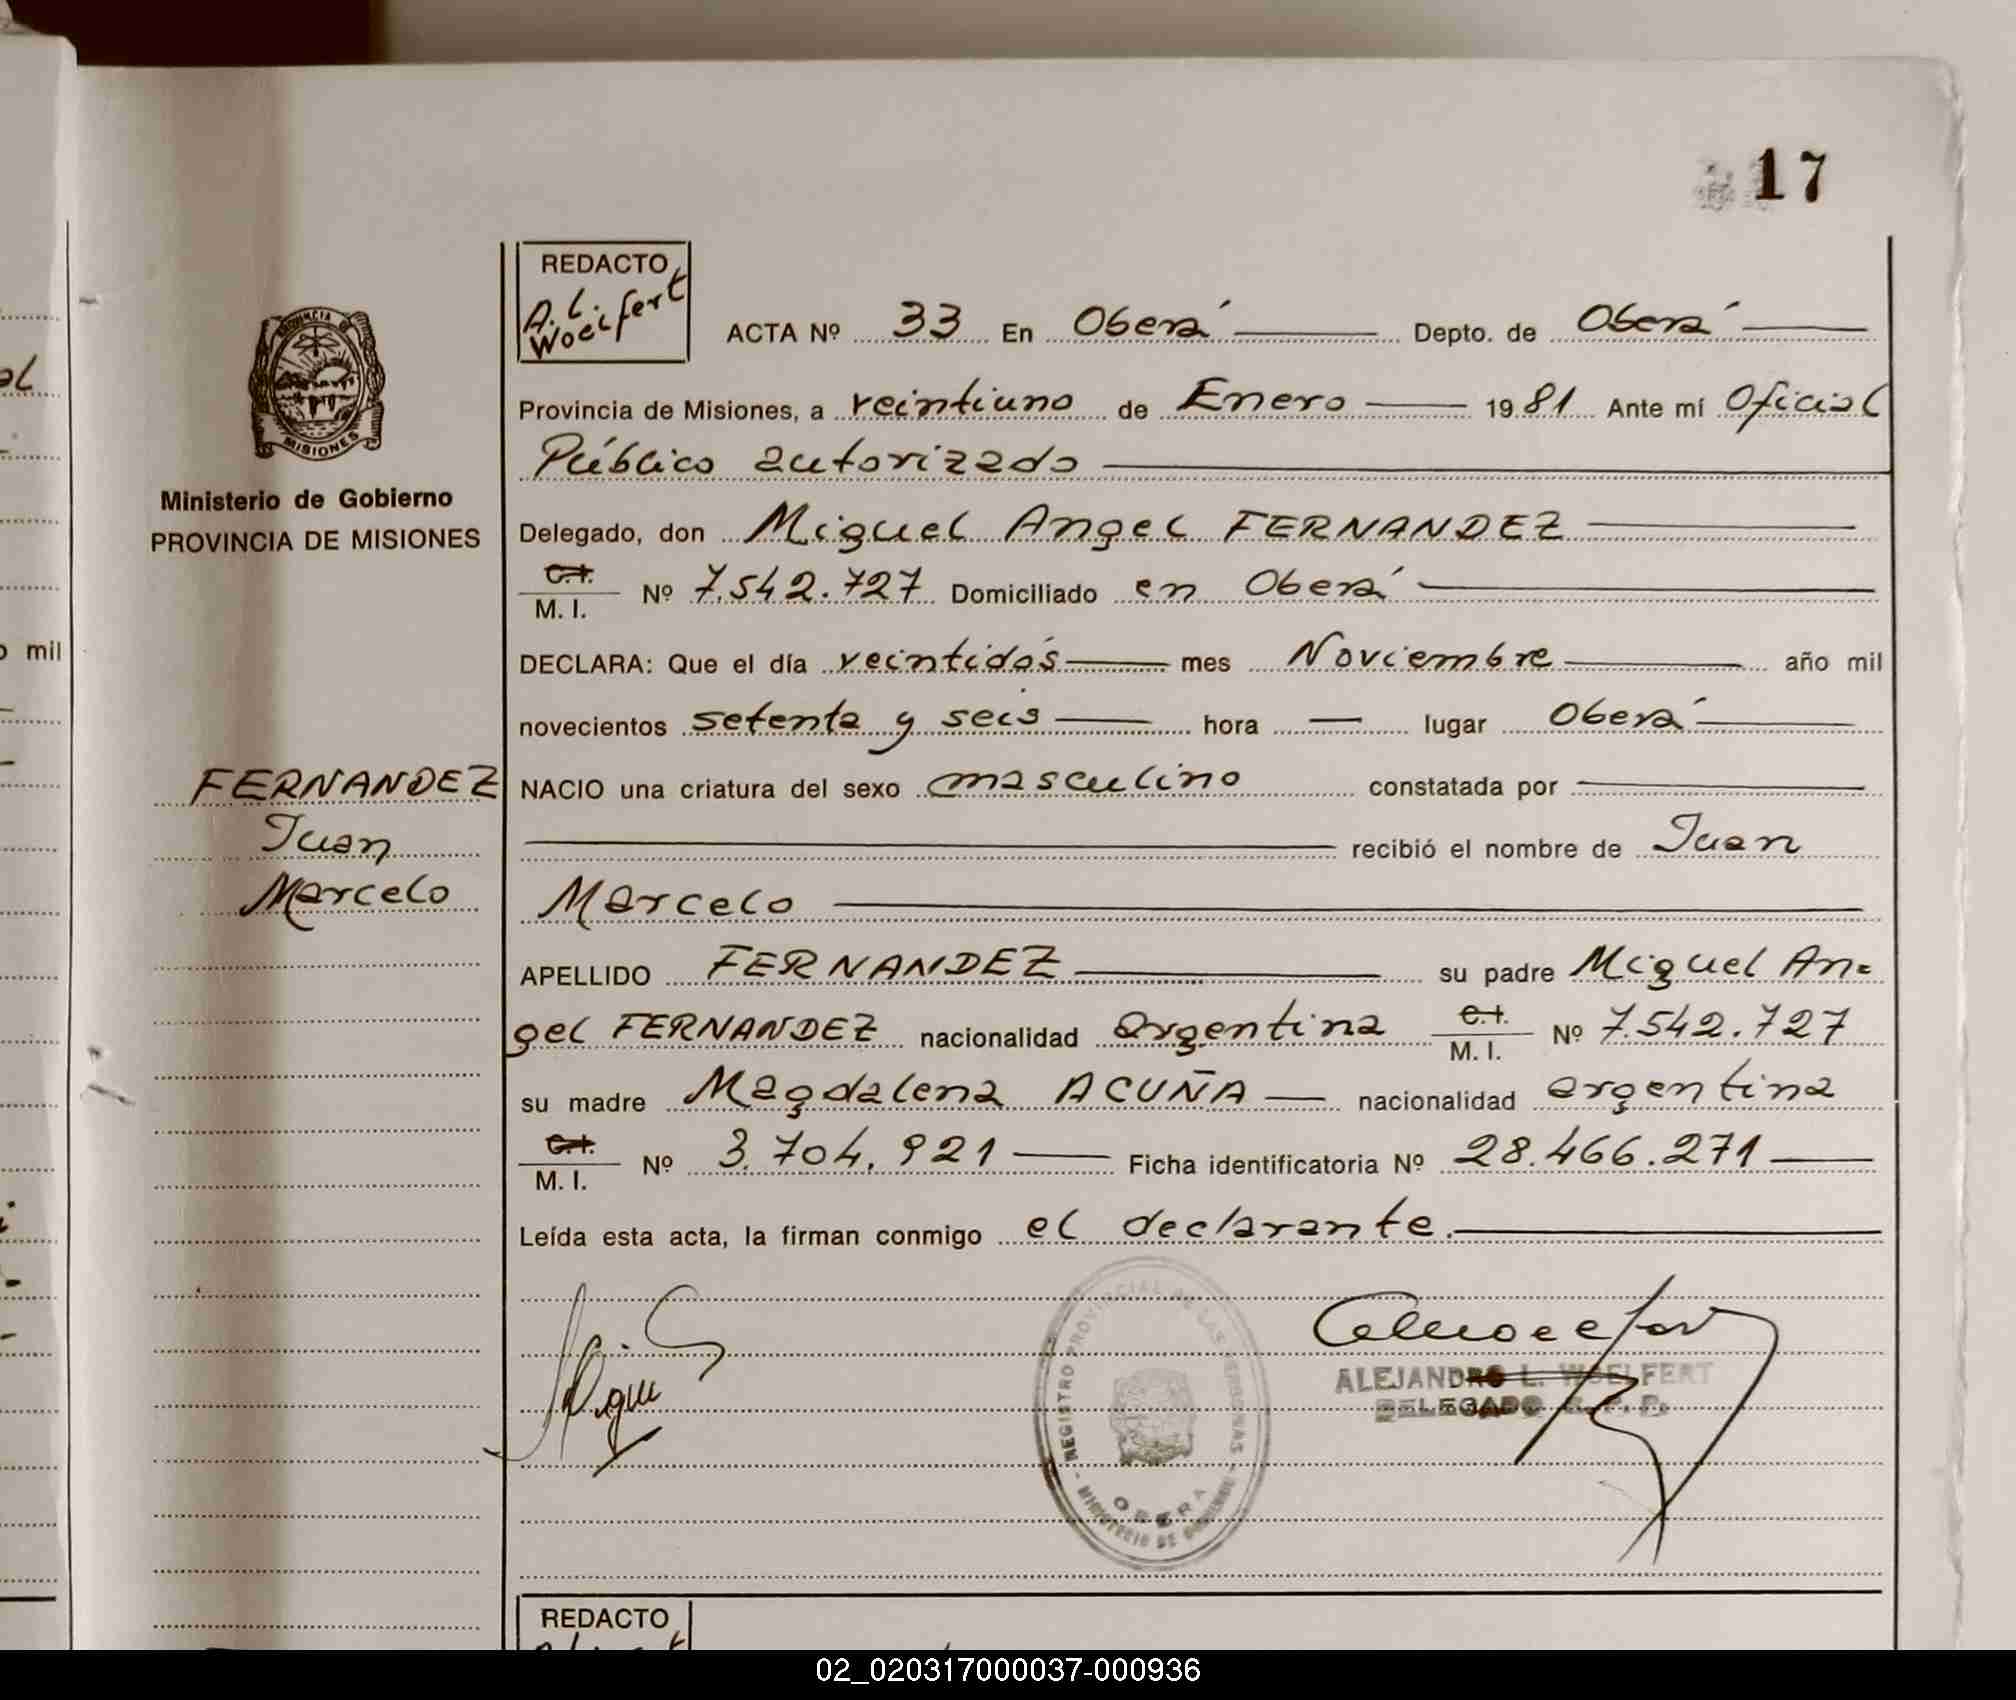 17
REDACTO
A. L.
Woelfert
ACTA Nº 33 En Oberá Depto. de Oberá
Provincia de Misiones, a veintiuno de Enero 1981 Ante mí Oficial
Público autorizado
Delegado, don Miguel Angel FERNANDEZ
C.I.
M. I. Nº 7.542.727 Domiciliado en Oberá
DECLARA: Que el día veintidós mes Noviembre año mil
novecientos setenta y seis hora — lugar Oberá
NACIO una criatura del sexo masculino constatada por
recibió el nombre de Juan
Marcelo
APELLIDO FERNANDEZ su padre Miguel An=
gel FERNANDEZ nacionalidad argentina C.I. M. I. Nº 7.542.727
su madre Magdalena ACUÑA nacionalidad argentina
C.I.
M. I. Nº 3.704.921 Ficha identificatoria Nº 28.466.271
Leída esta acta, la firman conmigo el declarante.
PROVINCIA DE
MISIONES
Ministerio de Gobierno
PROVINCIA DE MISIONES
FERNANDEZ
Juan
Marcelo
REGISTRO PROVINCIAL DE LAS PERSONAS
MINISTERIO DE GOBIERNO
OBERA
ALEJANDRO L. WOELFERT
DELEGADO R. P. P.
REDACTO
mil
02_020317000037-000936